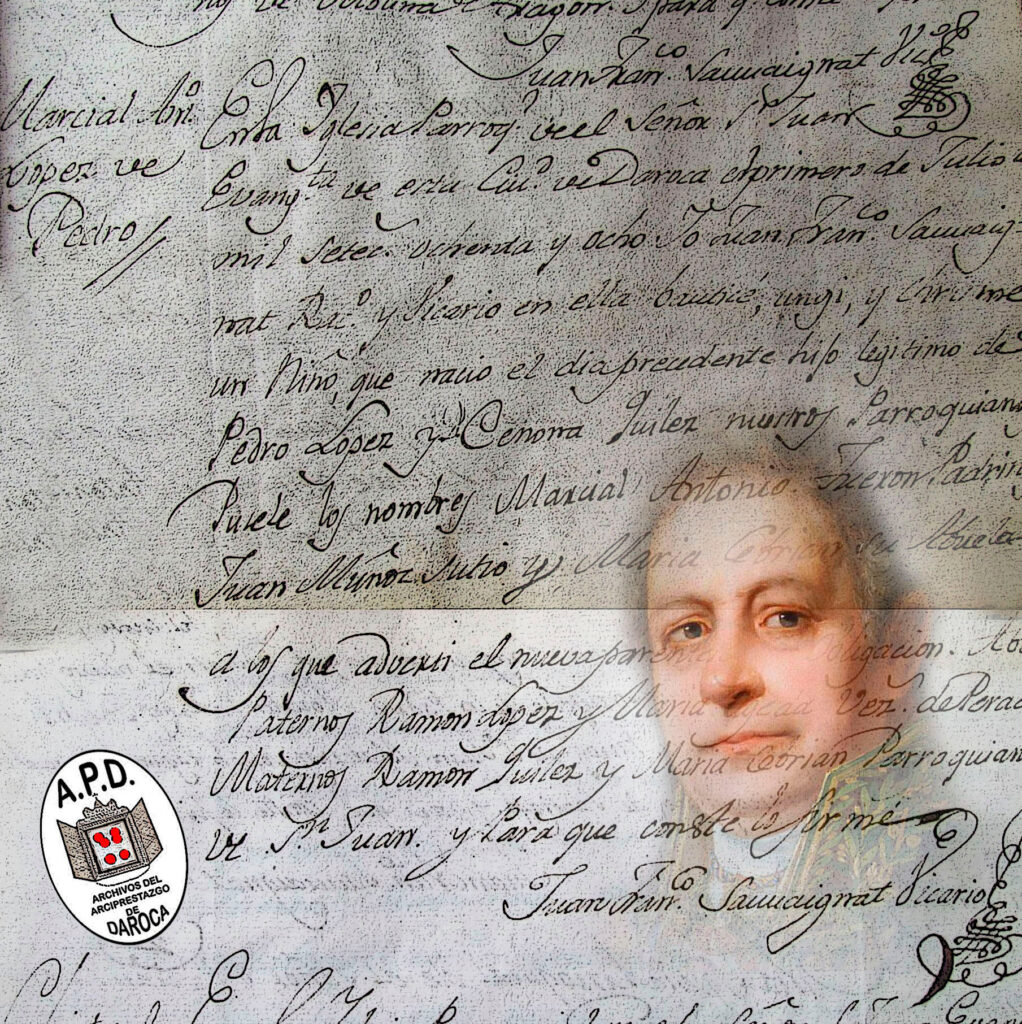 Aragon. Y para q conste
Juan Fran.co Sauuaignat Vic.o
Marcial An.o
Lopez de
Pedro
En la Iglesia Parroq.l de el Señor S.n Juan
Evang.ta de esta Ciu.d de Daroca en primero de Julio
mil setec. ochenda y ocho Yo Juan Fran.co Sauuaig-
nat Rac.o y Vicario en ella bauticé, ungi, y Chrisme
un Niño, que nacio el dia precedente hijo legitimo de
Pedro Lopez y Cenona Guilez nuestros Parroquian
Pusele los nombres Marcial Antonio. Fueron Padrin
Juan Muñoz su tio y Maria Cebrian su Abuela
a los que adverti el nuevo paren obligacion. Ao
Paternos Ramon Lopez y Maria Vez. de Perac
Maternos Ramon Guilez y Maria Cebrian Parroquian
de S.n Juan. y Para que conste lo firmé
Juan Fran.co Sauuaignat Vicario
A.P.D.
ARCHIVOS DEL
ARCIPRESTAZGO
DE
DAROCA